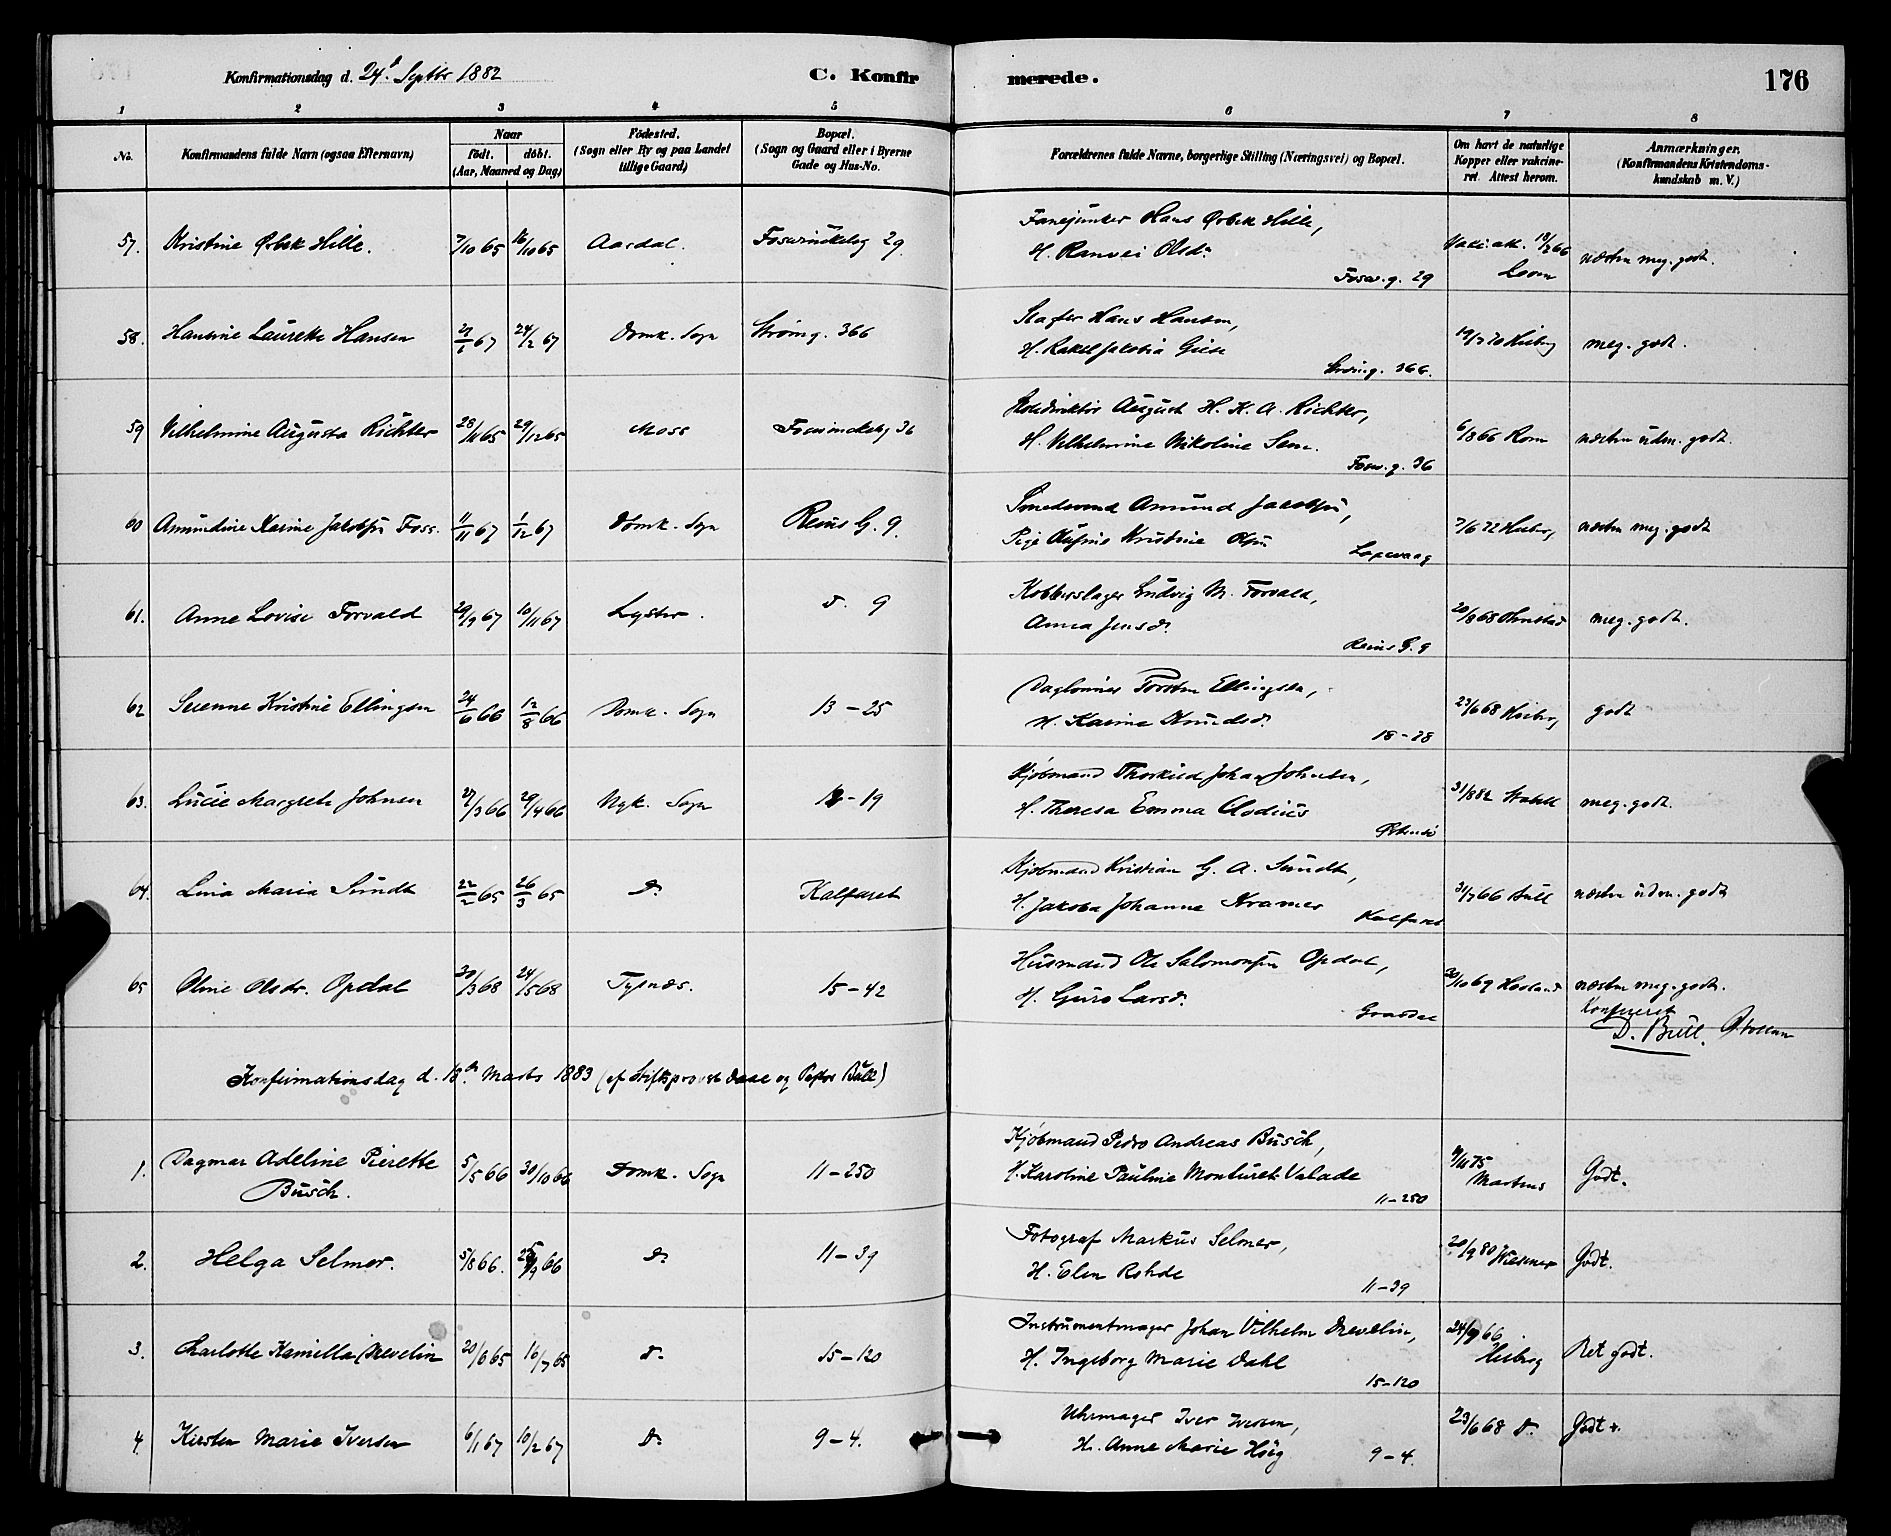 Konfirmationsdag d. 24d Septbr 1882
C. Konfirmerede.
176
1 2 3 4 5 6 7 8
No. Konfirmandens fulde Navn (ogsaa Efternavn) Naar födt. döbt. (Aar, Maaned og Dag) Födested. (Sogn eller By og paa Landet tillige Gaard) Bopæl. (Sogn og Gaard eller i Byerne Gade og Hus-No. Forældrenes fulde Navne, borgerlige Stilling (Næringsvei) og Bopæl. Om havt de naturlige Kopper eller vakcineret. Attest herom. Anmærkninger. (Konfirmandens Kristendomskundskab m. V.)
57. Kristine Ørbek Hille. 7/10 65 16/10 65 Aardal. 29 Fanejunker Hans Ørbek Hille,
H. Ranvei Olsdr
Fosw. g. 29
næsten meg. godt.
58. Hansine Laurette Hansen 24/2 67 Domk. Sogn Strømg. 366 Hans Hansen,
H. Rakel Jakobia Giese
Strømg. 366.
meg. godt.
59 Vilhelmine Augusta Richter 28/11 65 29/12 65 Moss 36 August H. K. A. Richter,
H. Vilhelmine Nikoline Sem.
Fosw. g. 36
6/8 66 næsten udm. godt.
60 Amundine Karine Jakobsen Foss. 11/11 67 1/12 67 Domk. Sogn Reins G. 9. Amund Jacobsen,
Pige Kristine Olsen
7/6 72 næsten meg. godt
61. Anne Lovise Forvald 29/9 67 10/11 67 Lyster. do 9 Kobberslager Ludvig M. Forvald,
Anna Jensdr
Reins G. 9
20/8 68 meg. godt.
62 Serenne Kristine Ellingsen 24/6 66 12/8 66 Domk. Sogn 13-25 Daglönner Torsten Ellingsen,
H. Karine Knudsdr
18-28
23/6 68 godt
63. Lucie Margrete Johnsen 27/3 66 29/4 66 Nyk. Sogn 19 Kjøbmand Thorkild Johan Johnsen,
H. Theresa Emma Clodius
31/8 82 meg. godt.
64. Lina Maria Sundt 22/2 65 26/3 65 do Kalfaret Kjøbmand Kristian G. A. Sundt,
H. Jakoba Johanne Kramer
Kalfaret
31/7 66 Bull næsten udm. godt
65 Oline Olsdr. Opdal 30/3 68 24/5 68 Tysnæs. 15-42 Husmand Ole Salomonsen Opdal,
H. Guro Larsdr
30/10 69 næsten meg. godt.
Konfereret
D. Bull.
Konfirmationsdag d. 18de Marts 1883 (af Stiftsprovst Daae og Pastor Bull)
1. Dagmar Adeline Pierette
Busch. 5/5 66 30/10 66 Domk. Sogn 11-250 Kjøbmand Pedro Andreas Busch,
H. Karoline Pauline Monturet Valade
11-250
Martens Godt.
2. Helga Selmer. 5/8 66. 66 do 11-39 Fotograf Markus Selmer,
H. Elen Rohde
11-39
20/9 80 Wiesener Godt.
3. Charlotte Kamilla Drevelin 20/6 65 16/7 65 do 15-120 Instrumentmager Johan Vilhelm Drevelin,
H. Ingeborg Marie Dahl
15-120
24/9 66 Ret godt.
4. Kirsten Marie Iversen 6/1 67 10/2 67 do 9-4. Uhrmager Iver Iversen,
H. Anne Marie Höeg
9-4.
23/6 68 do Godt +.